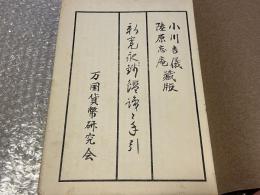 小川吉儀蔵版
陸原忘庵
新寛永銭鑑識と手引
万国貨幣研究会